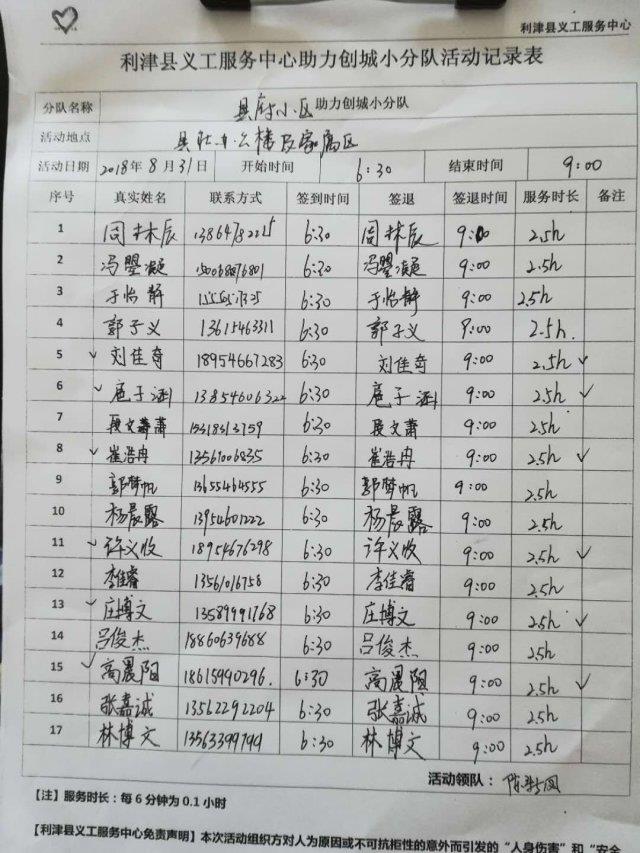 利津县义工服务中心
利津县义工服务中心助力创城小分队活动记录表
分队名称 县府小区助力创城小分队
活动地点 县社办公楼及家属区
活动日期 2018年8月31日 开始时间 6:30 结束时间 9:00
序号 真实姓名 联系方式 签到时间 签退 签退时间 服务时长 备注
1 周林辰 6:30 周林辰 9:00 2.5h
2 冯曌凝 15006876801 6:30 冯曌凝 9:00 2.5h
3 于怡静 6:30 于怡静 9:00 2.5h
4 郭子义 13615463311 6:30 郭子义 9:00 2.5h.
5 ✓ 刘佳奇 18954667283 6:30 刘佳奇 9:00 2.5h ✓
6 ✓ 扈子涵 6:30 扈子涵 9:00 2.5h ✓
7 段文萧萧 15318313759 6:30 段文萧 9:00 2.5h
8 ✓ 崔浩冉 13561006835 6:30 崔浩冉 9:00 2.5h ✓
9 郭梦帆 13655464555 6:30 郭梦帆 9:00 2.5h
10 杨晨露 13954601222 6:30 杨晨露 9:00 2.5h
11 ✓ 许义收 18954676298 6:30 许义收 9:00 2.5h ✓
12 李佳睿 13561016758 6:30 李佳睿 9:00 2.5h
13 ✓ 庄博文 13589991768 6:30 庄博文 9:00 2.5h ✓
14 吕俊杰 18860639688 6:30 吕俊杰 9:00 2.5h
15 ✓ 高晨阳 18615990296. 6:30 高晨阳 9:00 2.5h ✓
16 张嘉诚 13562292204 6:30 张嘉诚 9:00 2.5h
17 林博文 13563399799 6:30 林博文 9:00 2.5h
活动领队：
【注】服务时长：每6分钟为0.1小时
【利津县义工服务中心免责声明】本次活动组织方对人为原因或不可抗拒性的意外而引发的“人身伤害”和“安全